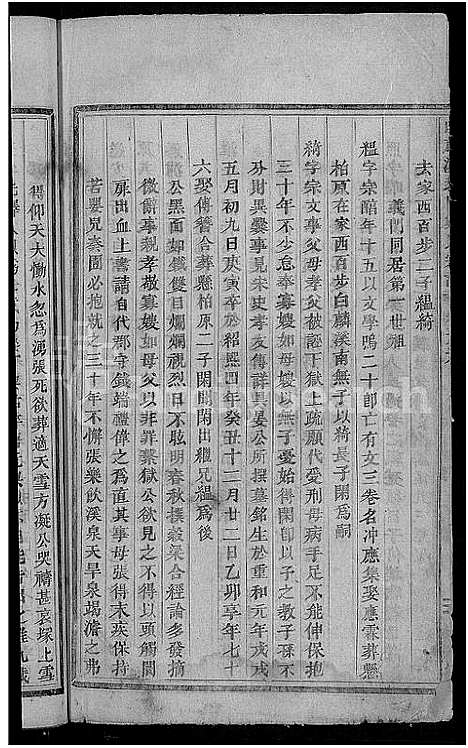 去家西百步二子縕綺
義們同居第一世祖
縕字宗醅年十五以文學鳴二十卽亡有文三卷名冲應集娶應霖葬懸
柏原在家西百步白麟溪南無子以綺長子閎爲嗣
綺字宗文事父母極孝父被誣下獄上疏願代受刑母病手足不能伸保抱
三十年不少衰事寡嫂如母以非始於得閎卽以子之教子孫不
分財異𤏲事具宋史孝友傳吳興晏公所撰墓銘生於重和元年戊戌
五月初九日庚寅卒於紹熙四年癸丑十二月廿二日乙卯享年七十
六娶傅簪合葬懸柏原二子閎聞閎出繼兄縕爲後
公黑面如漆雙目爛爛視烈日不眩明春秋撰穀梁合經論多發摘
微辭事親孝敬事寡嫂如母父以非罪繫獄公欲見之不得以頭觸闑
扉出血上書請自代郡守錢端禮偉之爲直其事母張得末疾保持
若嬰兒奏圊必抱就之三十年不懈張樂飲溪泉天旱泉竭濬之弗
得仰天大慟水忽爲湧張死欲葬適天雪方凝公哭禱甚哀塚上雪